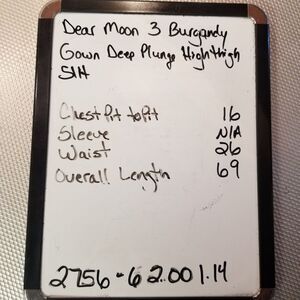 Dear Moon 3 Burgandy
Gown Deep Plunge High thigh
Slit
Chest Pit to Pit 16
Sleeve N/A
Waist 26
Overall Length 69
2756-6 2.00 1.14